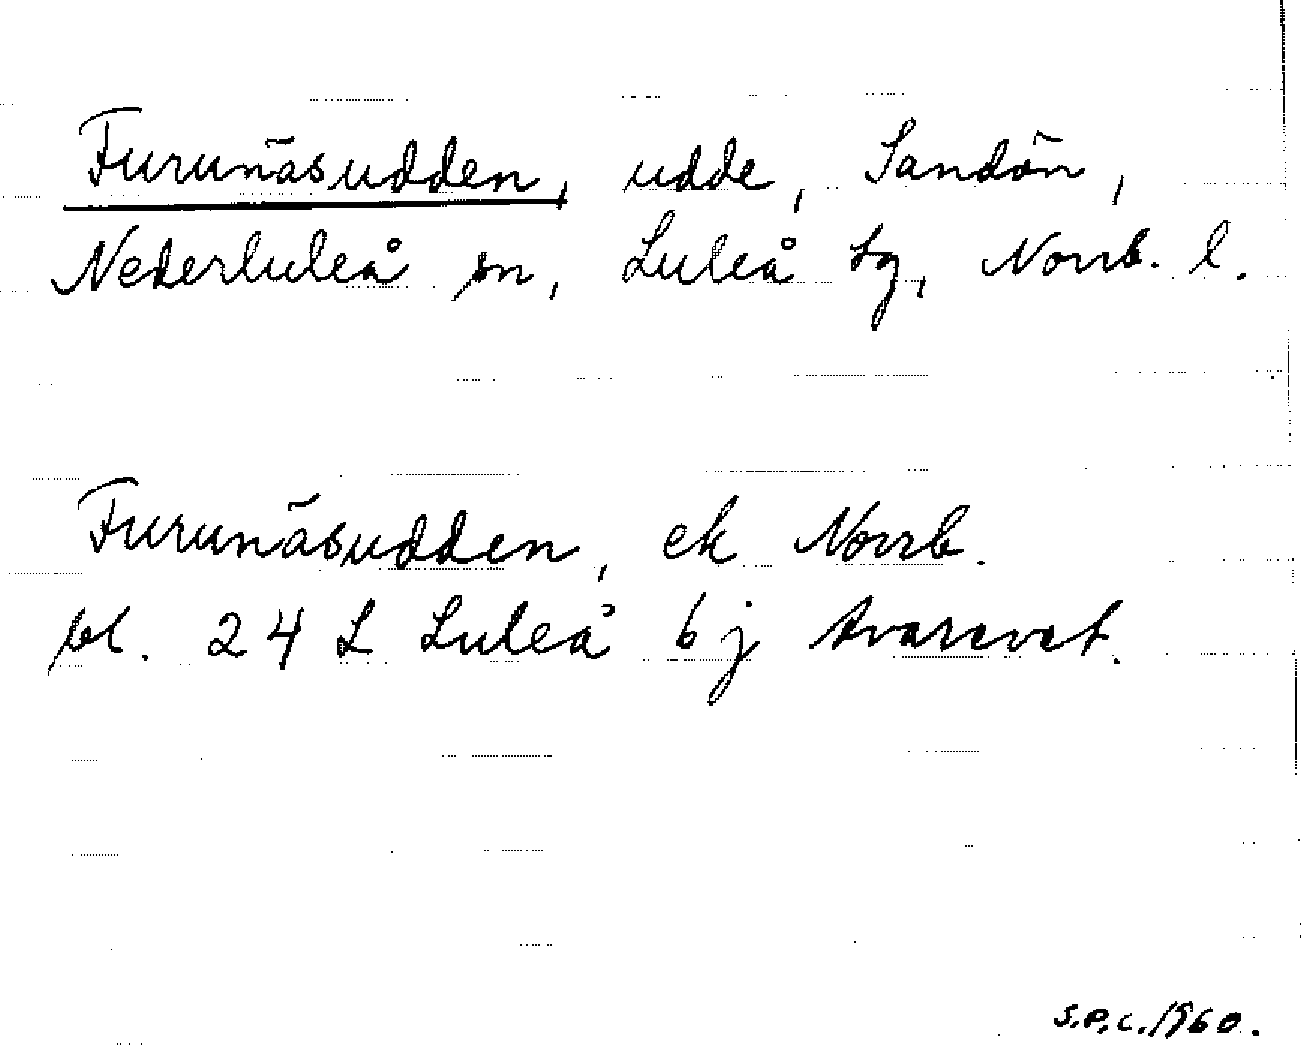 Furunäsudden, udde, Sandön,
Nederluleå sn, Luleå tg, Norrb. l.
Furunäsudden, ek Norrb.
bl. 24 L Luleå 6 j
S.P.C. 1960.